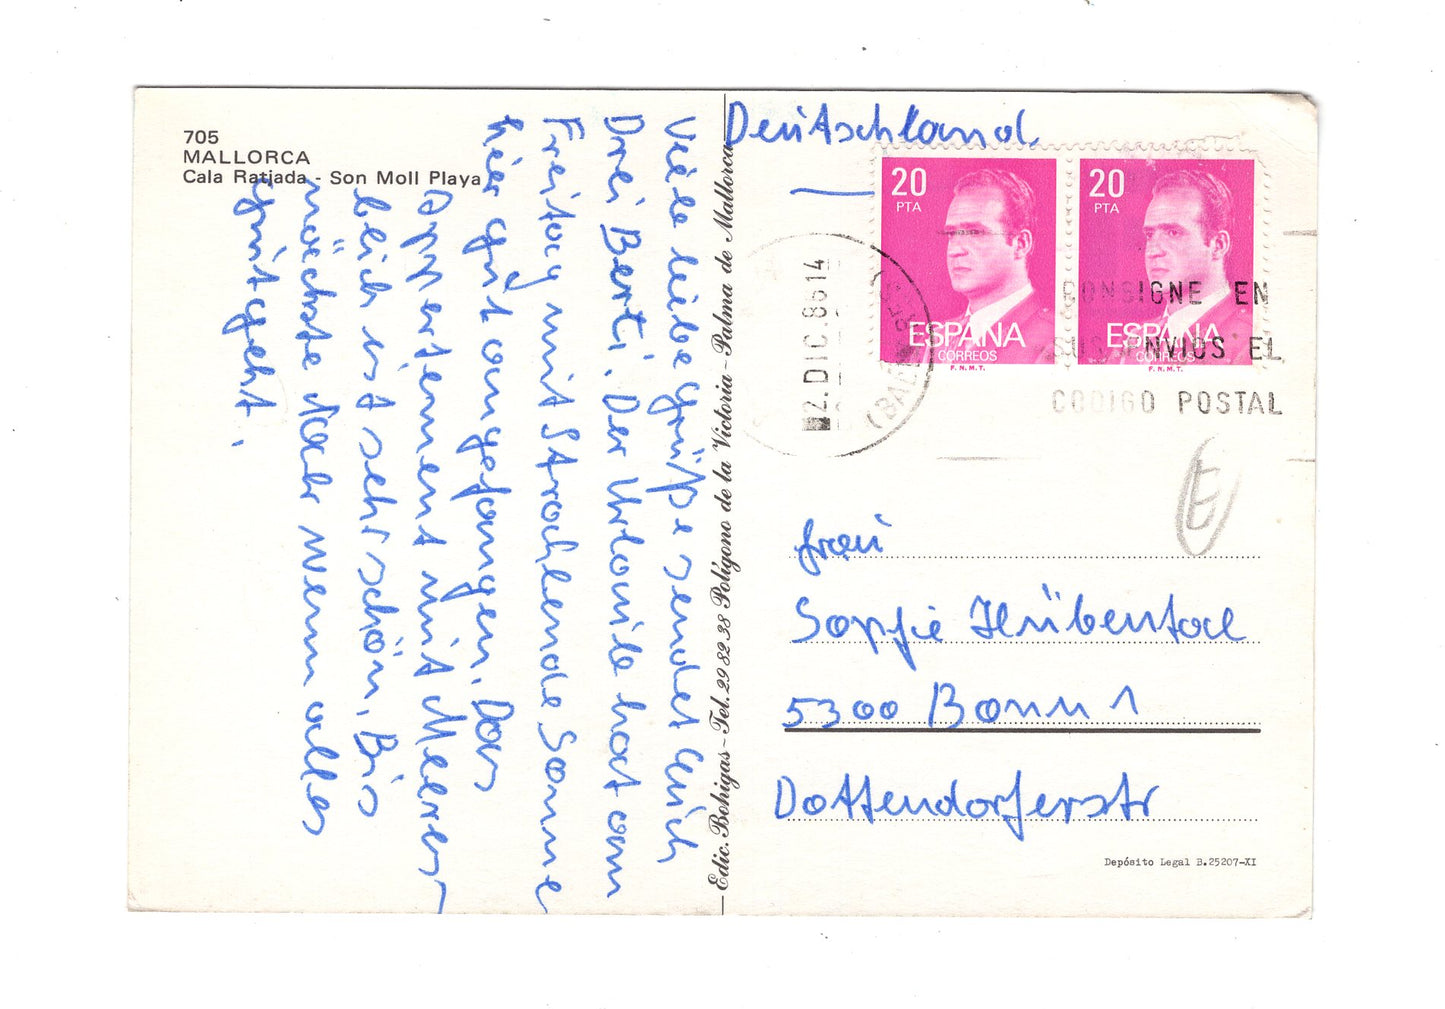 705
MALLORCA
Cala Ratjada - Son Moll Playa
Viele liebe Grüße sendet Euch
Drei Berti. Der Urlaub hat am
Freitag mit Strahlende Sonne
hier gut angefangen. Das
Appertement mit Meeres
blick ist sehr schön. Bis
nächste Jahr wenn alles
gut geht.
Edic. Bohigas - Tel. 29 82 38 Polígono de la Victoria - Palma de Mallorca
Deutschland
20
PTA
ESPAÑA
CORREOS
F.N.M.T.
20
PTA
ESPAÑA
CORREOS
F.N.M.T.
2.DIC.86 14
CONSIGNE EN
SUS ENVIOS EL
CODIGO POSTAL
Frau
Sopfie Hübental
5300 Bonn 1
Dottendorferstr
Depósito Legal B.25207-XI